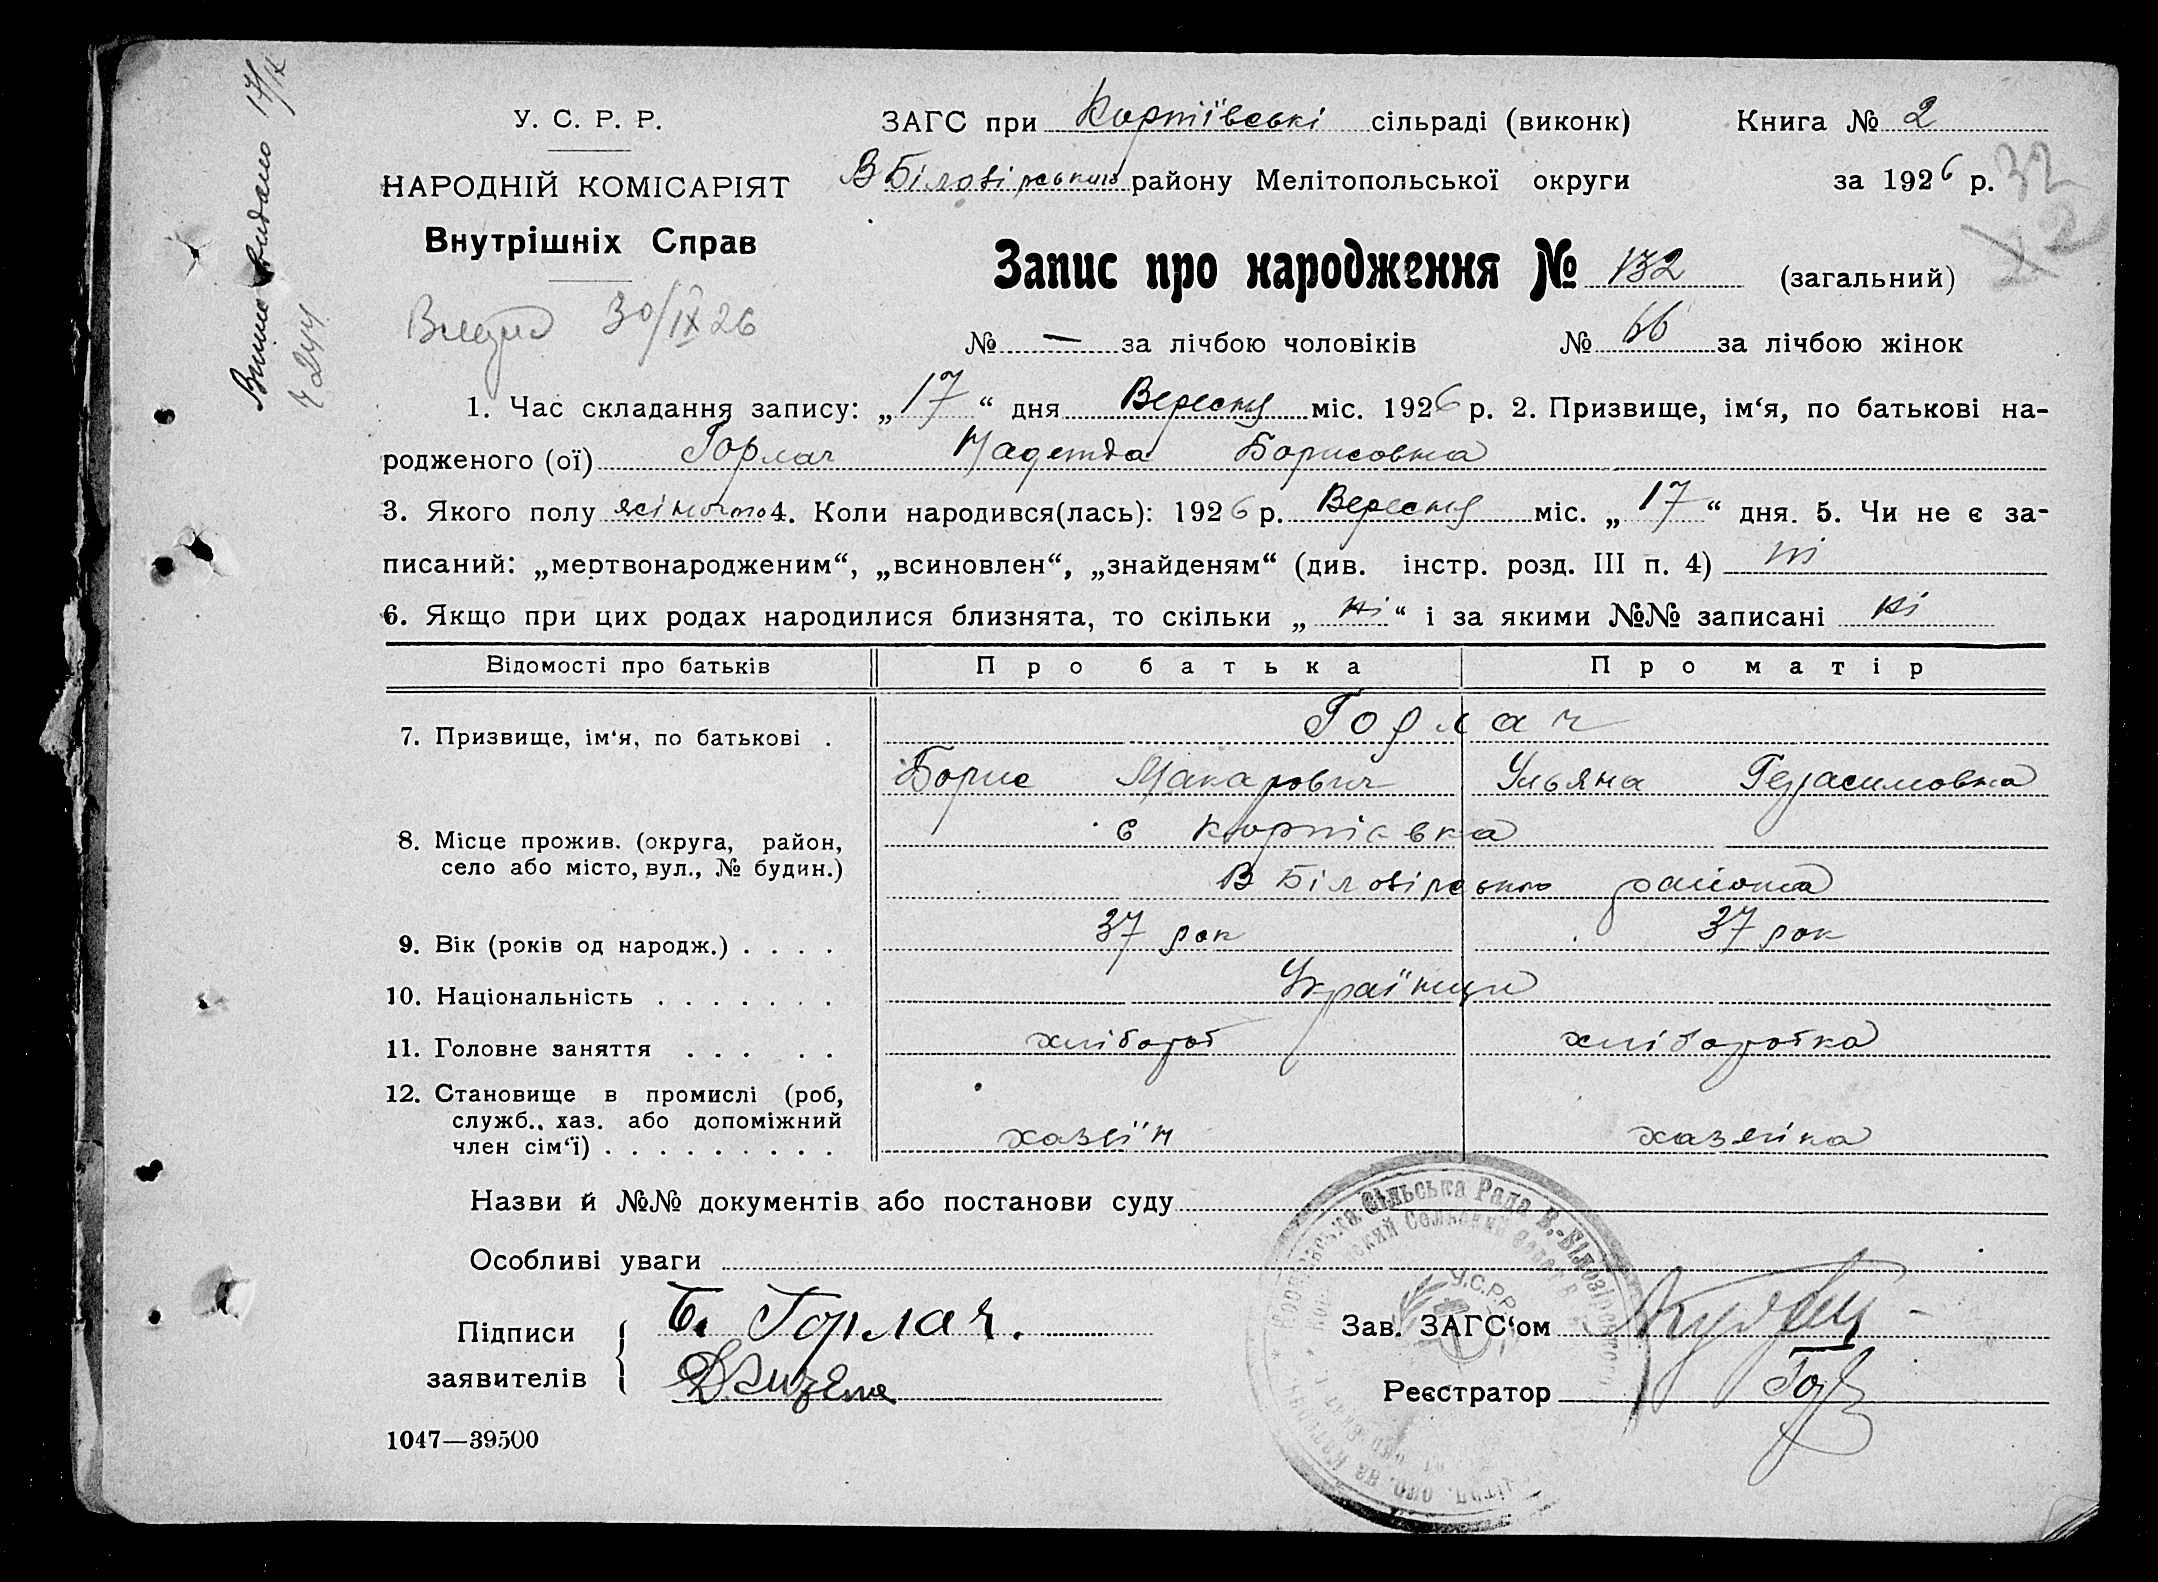 У. С. Р. Р.
НАРОДНІЙ КОМІСАРІЯТ
Внутрішніх Справ
ЗАГС при Кортіївські сільраді (виконк)
Книга № 2
В Білозірського району Мелітопольської округи
за 1926 р.
32
Запис про народження № 132 (загальний)
30/IX 26
№ — за лічбою чоловіків № 66 за лічбою жінок
1. Час складання запису: „17“ дня Вересня міс. 1926 р. 2. Призвище, ім‘я, по батькові на-
родженого (ої) Горлач Надежда Борисовна
3. Якого полу жіночого 4. Коли народився(лась): 1926 р. Вересня міс. „17“ дня. 5. Чи не є за-
писаний: „мертвонародженим“, „всиновлен“, „знайденям“ (див. інстр. розд. III п. 4) ні
6. Якщо при цих родах народилися близнята, то скільки „ні“ і за якими №№ записані ні
Відомості про батьків Про батька Про матір
7. Призвище, ім‘я, по батькові . Горлач
Борис Макарович Ульяна Герасимовна
8. Місце прожив. (округа, район, с Кортієвка
село або місто, вул., № будин.) В Білозірського района
9. Вік (років од народж.) . . . . 37 рок 37 рок
10. Національність . . . . . . . Українци
11. Головне заняття . . . . . хлібороб хліборобка
12. Становище в промислі (роб,
служб., хаз. або допоміжний
член сім‘ї) . . . . . . . . . хазяїн хазяйка
Назви й №№ документів або постанови суду
Особливі уваги
Підписи Б. Горлач.
заявителів
Зав. ЗАГС‘ом
Реєстратор
Сільська Рада В.-Білозірського
У.С.Р.Р.
1047—39500